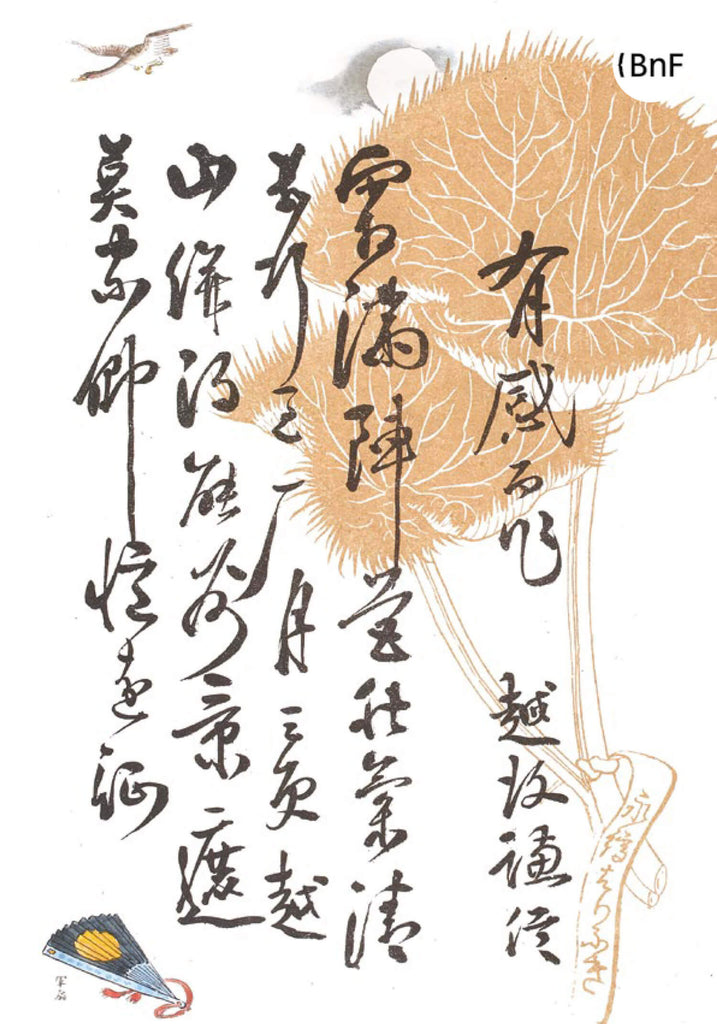 BnF
有感而作 越後謙信
霜満陣営秋氣清
数行過雁月三更越
山併得能州景遮
莫家郷憶遠征
軍扇